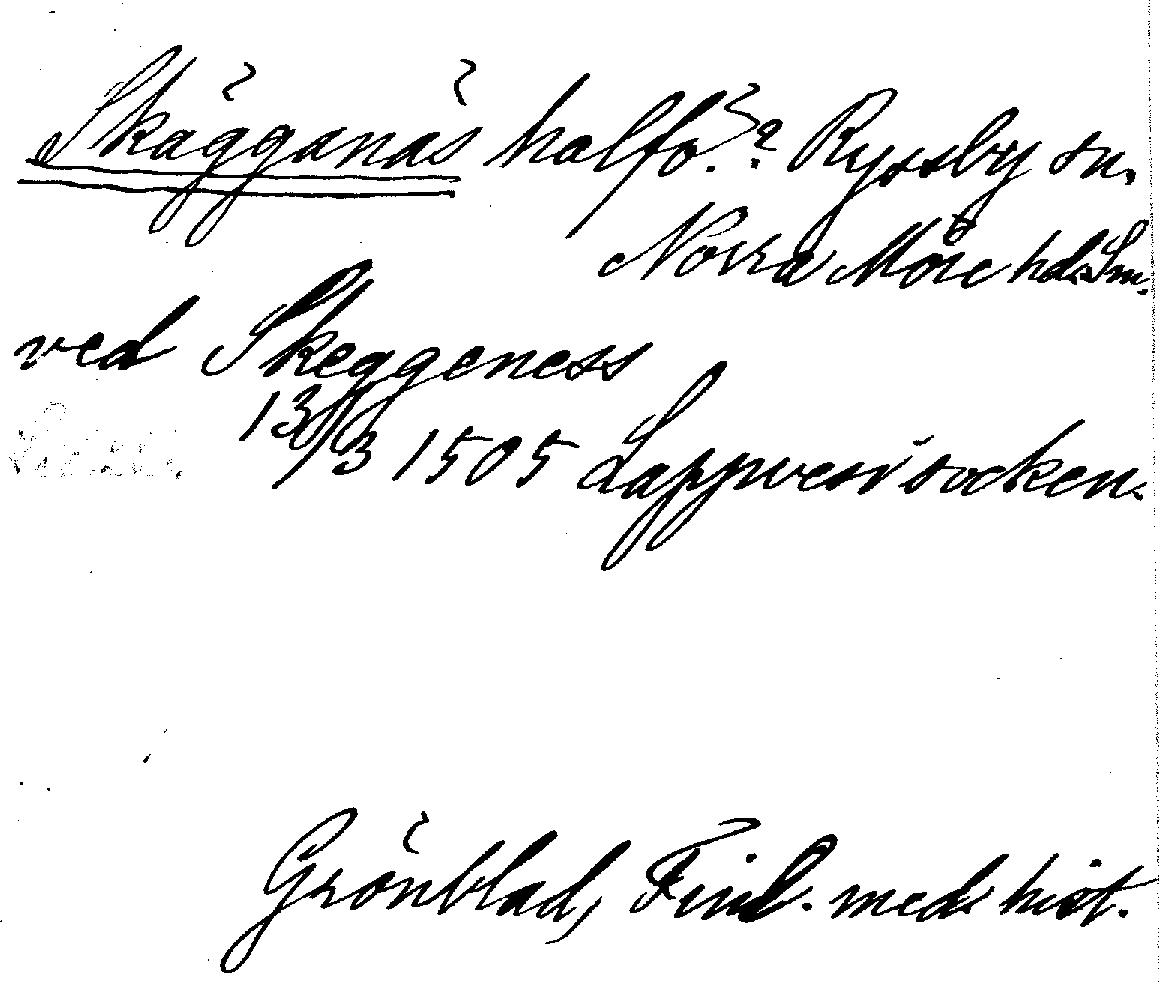 Skägganäs halfö.? Ryssby sn.
Norra Möre hd. Sm.
ved Skeggeness
13/3 1505 Lappvesi socken.
Grönblad, Finl. meds hist.